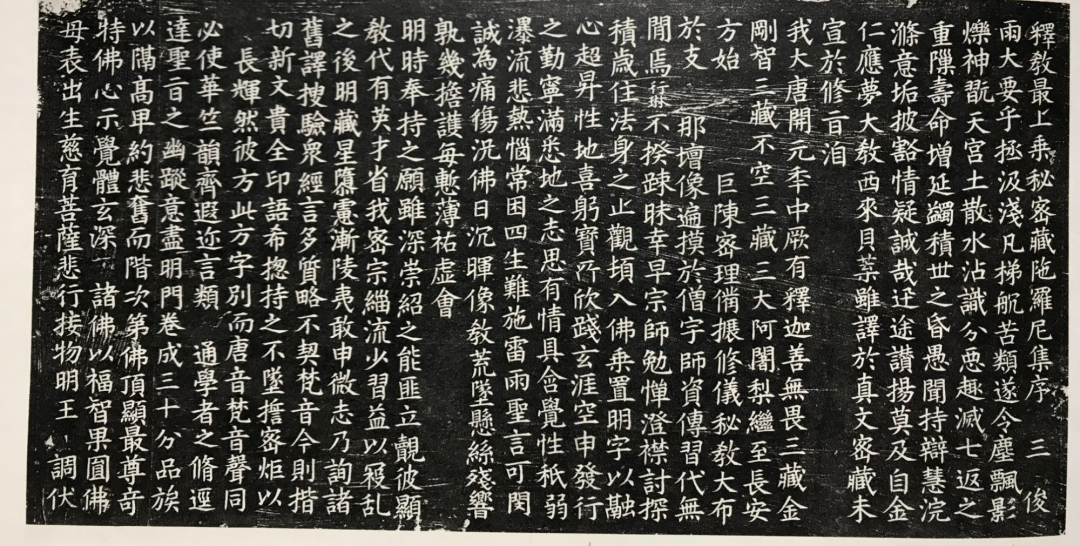 釋教最上乘秘密藏陁羅尼集序　三　俊
雨大要乎拯汲淺凡梯航苦類遂令塵飄影
爍神翫天宮土散水沾識分惡趣滅七返之
重𨻶壽命增延蠲積丗之昏愚聞持辯慧浣
滌意垢披豁情疑誠哉迀途讃揚莫及自金
仁應夢大教西來貝葉雖譯於真文密藏未
宣於修旨洎
我大唐開元秊中厥有釋迦善無畏三藏金
剛智三藏不空三藏三大阿闍梨繼至長安
方始　巨陳密理俻振修儀秘教大布
於支　那壇像遍摸於僧字師資傳習代無
間焉行琳不揆踈昧幸早宗師勉憚澄襟討探
積歳住法身之止觀頃入佛乘置明字以融
心超昇性地喜躬寳所欣踐玄涯空申發行
之勤寧滿悉地之志思有情具含覺性秖弱
瀑流悲熱惱常困四生難施雷雨聖言可閔
誠為痛傷況佛日沉暉像教荒墜懸絲殘響
孰幾擔護毎慙薄祐虛會
明時奉持之願雖深崇紹之能匪立覩彼顯
教代有英才省我密宗緇流少習益以㲃乱
之後明藏星隳憲漸陵夷敢申微志乃詢諸
舊譯搜驗衆經言多質略不契梵音今則揩
切新文貴全印語希揔持之不墜擔密炬以
長輝然彼方此方字別而唐音梵音聲同
必使華竺韻齊遐迩言類　通學者之脩逕
達聖旨之幽蹤意盡明門卷成三十分品族
以隔高卑約悲奮而階次第佛頂顯最尊竒
特佛心示覺體玄深　諸佛以福智果圓佛
母表出生慈育菩薩悲行接物明王　調伏